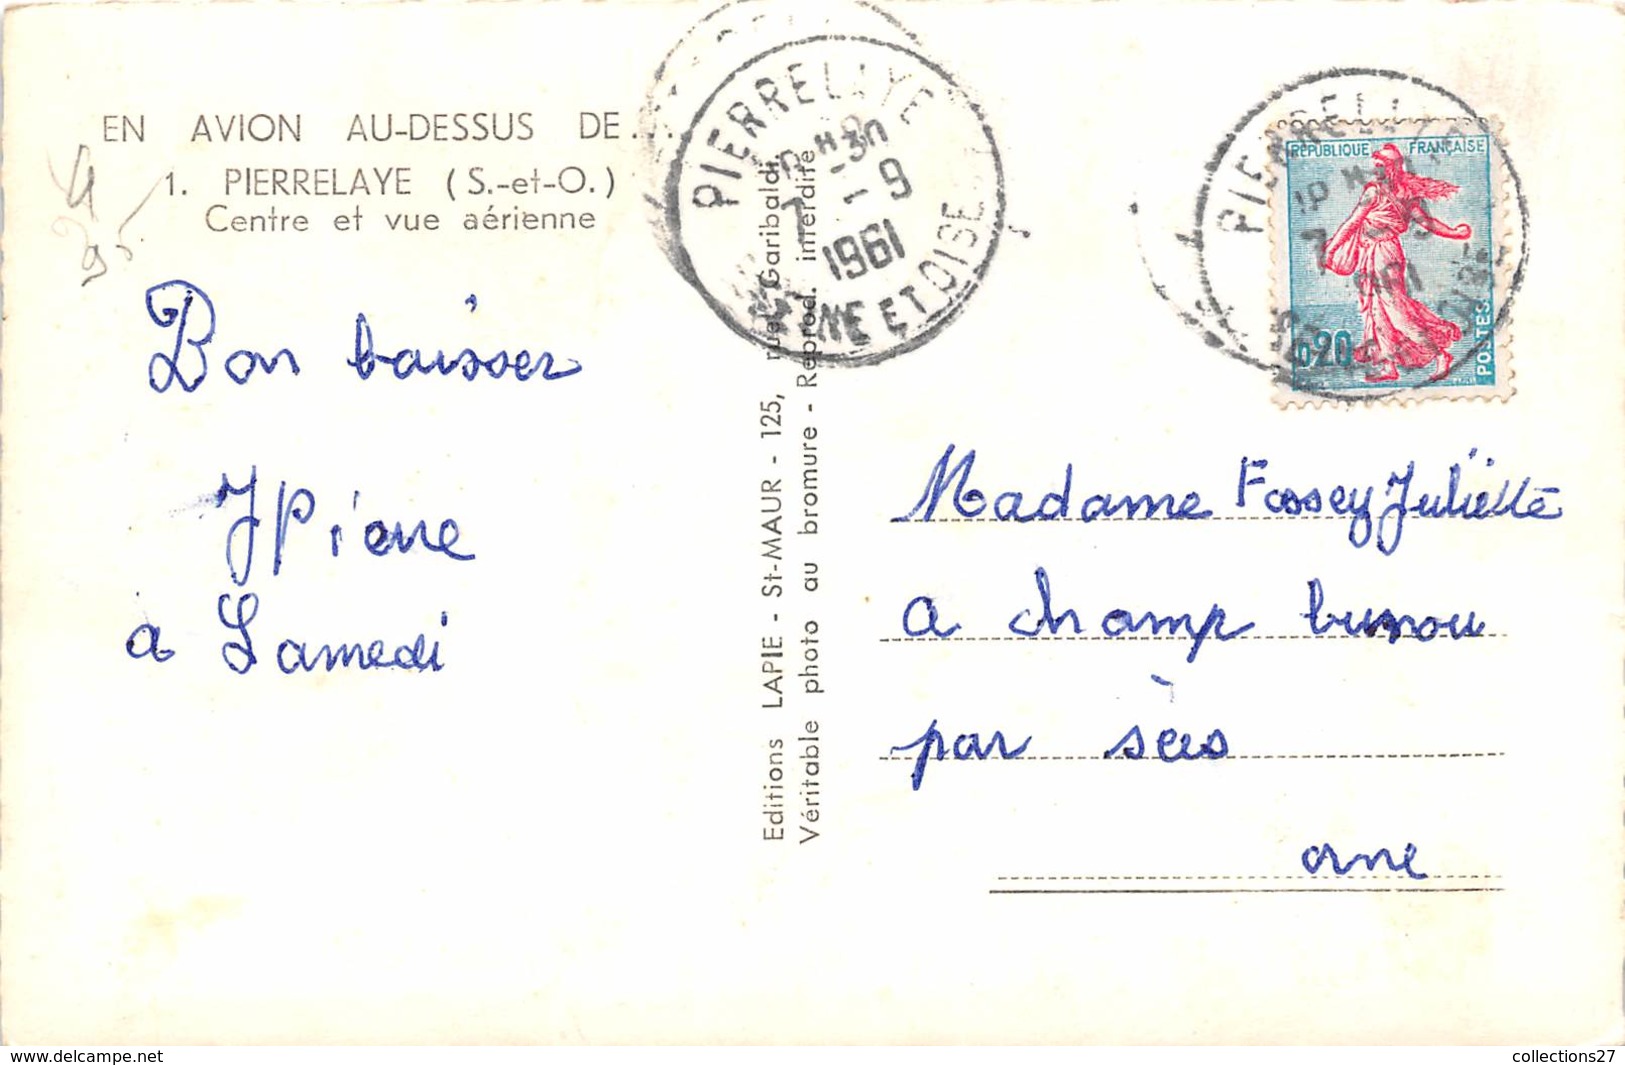 EN AVION AU-DESSUS DE...
1. PIERRELAYE (S.-et-O.)
Centre et vue aérienne
95
Bon baisser
JPierre
a Samedi
Editions LAPIE - St-MAUR - 125, rue Garibaldi
Véritable photo au bromure - Reprod. interdite
PIERRELAYE
7 - 9
1961
SEINE ET OISE
PIERRELAYE
RÉPUBLIQUE FRANÇAISE
0,20
POSTES
Madame Fossey Juliette
a champ
par sées
orne
collections27
https://www.delcampe.net